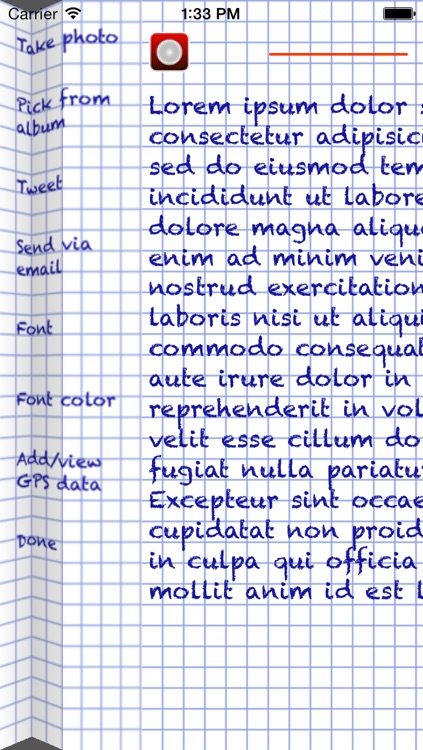 Carrier 1:33 PM
Take photo
Pick from
album
Tweet
Send via
email
Font
Font color
Add/view
GPS data
Done
Lorem ipsum dolor s
consectetur adipisici
sed do eiusmod tem
incididunt ut labore
dolore magna aliqu
enim ad minim veni
nostrud exercitation
laboris nisi ut aliqui
commodo consequat
aute irure dolor in
reprehenderit in vol
velit esse cillum do
fugiat nulla pariatu
Excepteur sint occae
cupidatat non proid
in culpa qui officia
mollit anim id est l